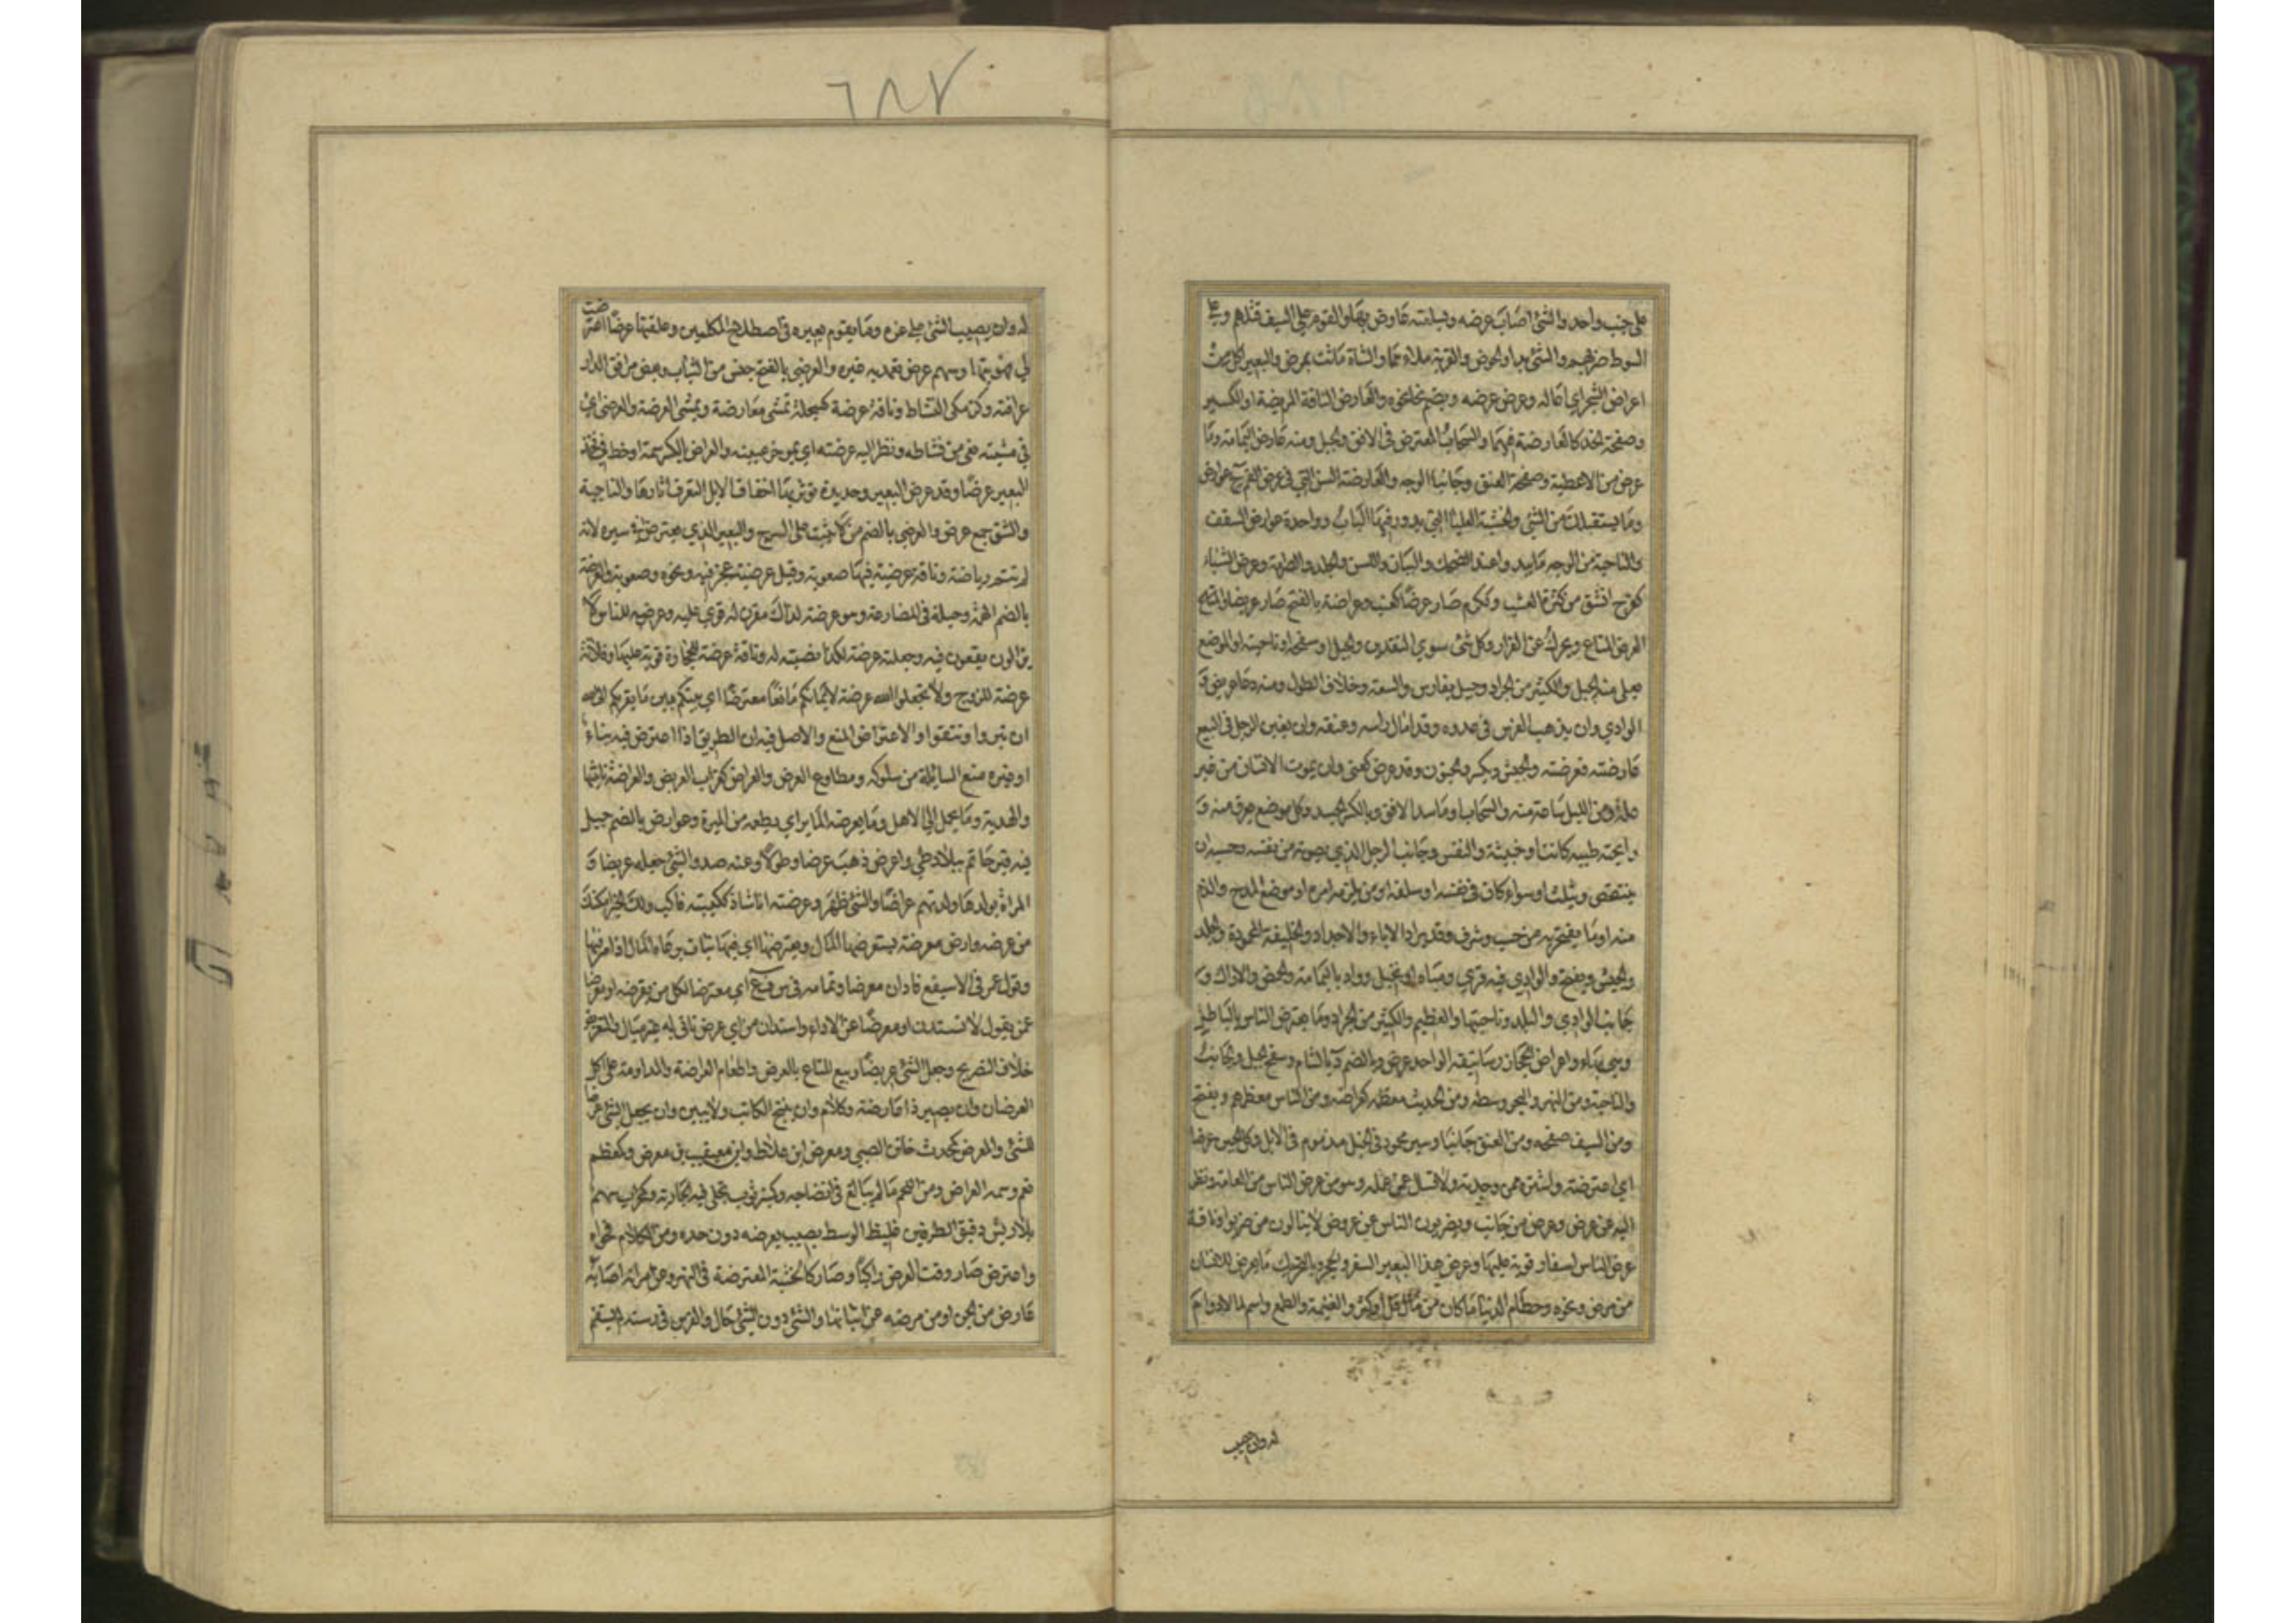 على جنب واحد والشئ اصاب عرضه وبسلعته عارض بها والقوم على السيف قتلهم وعلى
السوط ضربهم والشئ بدا والحوض والقربة ملاءهما والشاة ماتت بمرض والبعير اكل من
اعراض الشجر اي اعاليه وعرض عرضه ويضم نحا نحوه والعارض الناقة المريضة او الكسير
وصفحة الخد كالعارضة فيهما والسحاب المعترض فى الافق والجبل ومنه عارض اليمامة وما
عرض من الاعطية وصفحة العنق وجانبا الوجه والعارضة السن التي فى عرض الفم ج عوارض
وما يستقبلك من الشئ والخشبة العليا التي يدور فيها الباب وواحدة عوارض السقف
والناحية من الوجه ما يبدو عند الضحك والبيان واللسن والجلد والصرامة وعرض الشاء
كفرح انشق من كثرة العشب وككرم صار عرضا كعنب وعراضة بالفتح صار عريضا والفتح
العرض المتاع ويحرك عن القزاز وكل شئ سوي النقدين والجبل او سفحه او ناحيته او الموضع
يعلى منه الجبل والكثير من الجراد وجبل بفارس والسعة وخلاف الطول ومنه دعاء عريض و
الوادي وان يذهب الفرس فى عدوه وقد امال راسه وعنقه وان يغبن الرجل فى البيع
عارضته فعرضته والجيش ويكسر والجنون وقد عرض كعنى وان يموت الانسان من غير
علة ومن الليل ساعة منه والسحاب او ما سد الافق وبالكسر الجسد وكل موضع يعرق منه و
رايحته طيبه كانت او خبيثة والنفس وجانب الرجل الذي يصونه من نفسه وحسبه ان
ينتقص ويثلب او سواء كان فى نفسه او سلفه او من يلزمه امره او موضع المدح والذم
منه او ما يفتخر به من حسب وشرف وقد يراد الاباء والاجداد والخليقة المحمودة والجلد
والجيش ويفتح والوادي فيه قري ومياه او نخيل وواد باليمامة والحمض والاراك و
جانب الوادي والبلد وناحيتها والعظيم والكثير من الجراد وما يعترض الناس بالباطل
وهي بهاء واعراض الحجاز رساتيقه الواحد عرض وبالضم د بالشام وسفح الجبل والجانب
والناحية ومن النهر والبحر وسطه ومن الحديث معظمه كعراضه ومن الناس معظمهم ويفتح
ومن السيف صفحه ومن العنق جانبا وسير محمود فى الخيل مذموم فى الابل وكل الجبن عرضا
اي اعترضه واشتره ممن وجدته ولا تسل عمن عمله وهو من عرض الناس من العامة ونظر
اليه عن عرض وعرض من جانب ويضربون الناس عن عرض لا يبالون من ضربوا وناقة
عرض الناس اسفار قوية عليها وعرض هذا البعير السفر والحجر وبالتحريك ما يعرض للانسان
من مرض ونحوه وحطام الدنيا ما كان من مال قل او كثر والغنيمة والطمع واسم لما لا دوام
له وان يصيب
٦٨٧
له وان يصيب الشئ على غره وما يقوم بغيره فى اصطلاح المتكلمين وعلقتها عرضا اعترضت
لي فهويتها وسهم عرض تعمد به غيره والعرضي بالفتح جنس من الثياب وبعض مرافق الدار
عراقية وكزمكى النشاط وناقة عرضة كسبحلة تمشي معارضة ويمشي العرضة والعرضى اي
فى مشيته بغى من نشاطه ونظر اليه عرضته اي بموخر عينه والعراض بالكسر سمة او خط فى فخذ
البعير عرضا وقد عرض البعير وحديدة تؤثر بها اخفاف الابل لتعرف اثارها والناحية
والشق جمع عرض والعرضي بالضم من لا يثبت على السرج والبعير الذي يعترض فى سيره لانه
لم تتم رياضته وناقة عرضية فيها صعوبة وقيل عرضية عجز فيه ونخوه وصعوبة والعرضة
بالضم الهمة وحيلة فى المصارعة وهو عرضة لذاك مقرن له قوي عليه وعرضة للناس لا
يزالون يقعون فيه وجعلته عرضة لكذا نصبته له وناقة عرضة للحجارة قوية عليها وفلانة
عرضة للزوج ولا تجعلوا الله عرضة لايمانكم مانعا معترضا اي بينكم وبين ما يقربكم الى الله
ان تبروا وتتقوا والاعتراض المنع والاصل فيه ان الطريق اذا اعترض فيه بناء
او غيره منع السابلة من سلوكه ومطاوع العرض والعراض كغراب العريض والعراضة تانيثها
والهدية وما يحمل الى الاهل وما يعرضه المائر اي يطعمه من الميرة وعوارض بالضم جبل
فيه قبر حاتم ببلاد طي واعرض ذهب عرضا وطولا وعنه صد والشئ جعله عريضا و
المراة بولدها ولدتهم عراضا والشئ ظهر وعرضته انا شاذ ككببته فاكب ولك الخير امكنك
من عرضه وارض معرضة يستعرضها المال ويعترضها اي فيها نبات يرعاه المال اذا مر فيها
وقول عمر فى الاسيفع فادان معرضا وتمامه فى س ف ع اي معترضا لكل من يقرضه او معرضا
عمن يقول لا تستدن او معرضا عن الاداء واستدان من اي عرض تاتى له غير مبال والتعريض
خلاف التصريح وجعل الشئ عريضا وبيع المتاع بالعرض واطعام العراضة والمداومة على اكل
العرضان وان يصير ذا عارضة وكلام وان يثبج الكاتب ولا يبين وان يجعل الشئ عرضا
للشئ والمعرض كمحدث خاتن الصبي ومعرض ابن علاط وابن معيقيب بن معرض وكمعظم
نعم وسمه العراض ومن اللحم ما لم يبالغ فى انضاجه وكمنبر ثوب تجلى فيه الجارية وكمحراب سهم
بلا ريش دقيق الطرفين غليظ الوسط يصيب بعرضه دون حده ومن الكلام فحواه
واعترض صار وقت العرض راكبا وصار كالخشبة المعترضة فى النهر وعن امراته اصابه
عارض من الجن او من مرض عن اتيانها والشئ دون الشئ حال والفرس فى رسنه لم يستقم